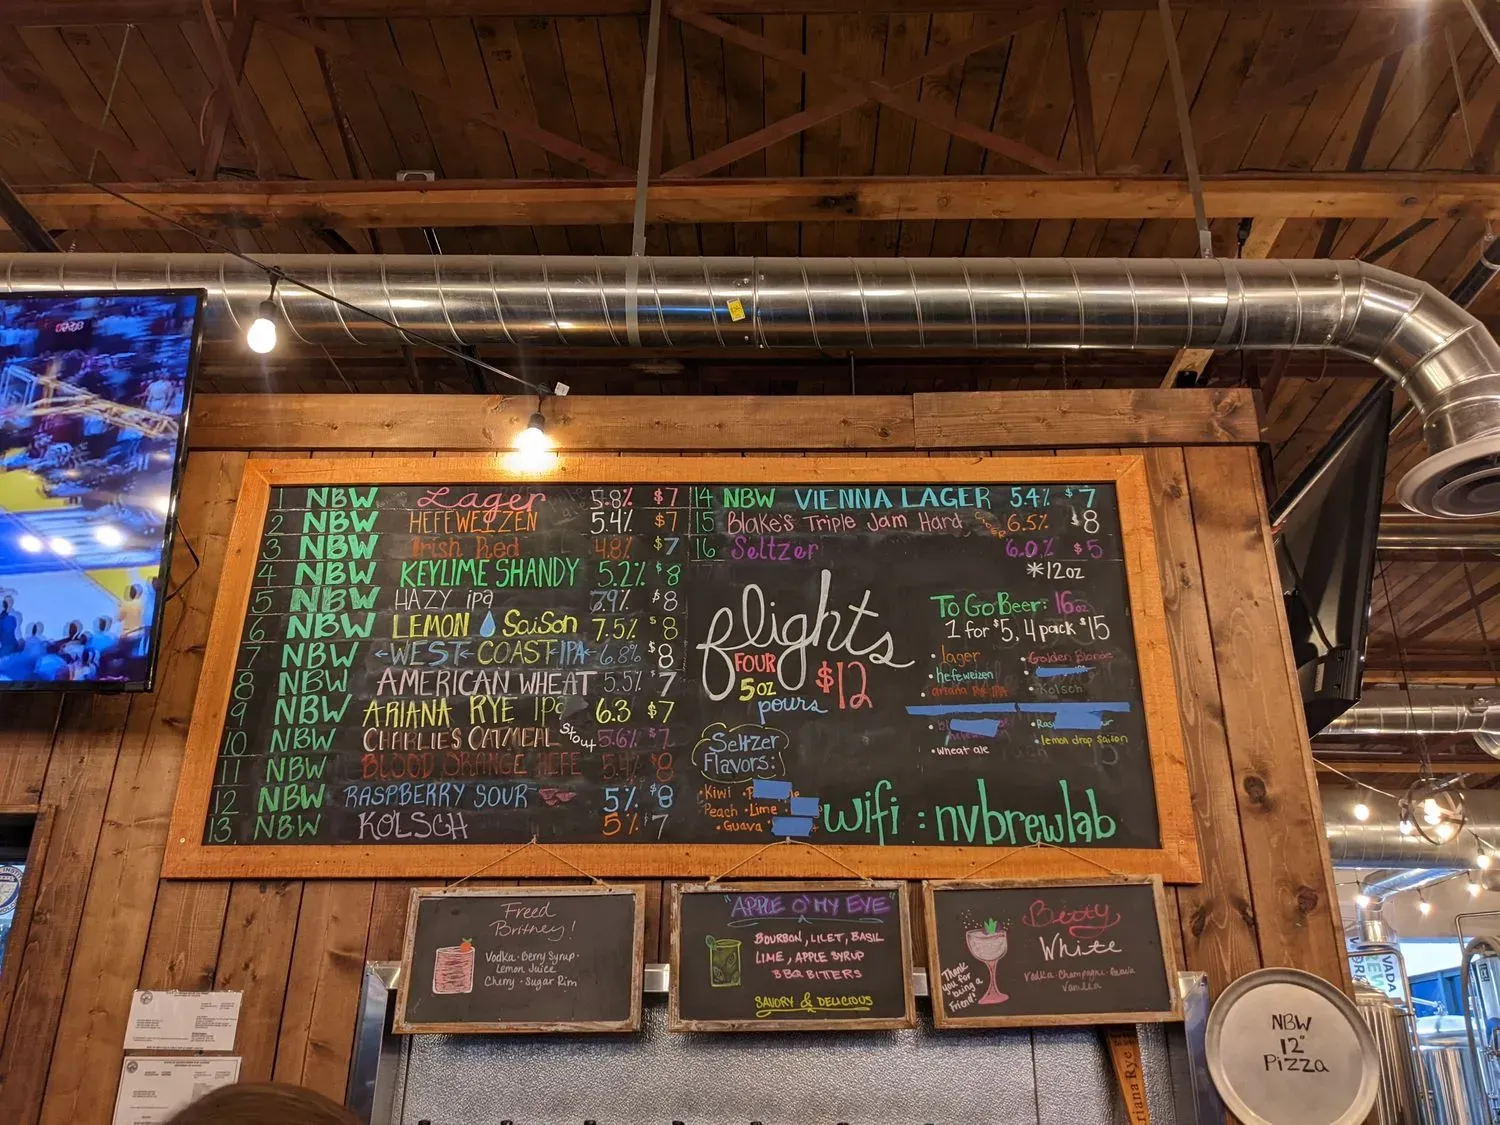 1 NBW Lager 5.8% $7
2 NBW HEFEWEIZEN 5.4% $7
3 NBW Irish Red 4.8% $7
4 NBW KEYLIME SHANDY 5.2% $8
5 NBW HAZY ipa 7.9% $8
6 NBW LEMON SaiSon 7.5% $8
7 NBW WEST COAST IPA 6.8% $8
8 NBW AMERICAN WHEAT 5.5% $7
9 NBW ARIANA RYE IPa 6.3 $7
10 NBW CHARLIES OATMEAL Stout 5.6% $7
11 NBW BLOOD ORANGE HEFE 5.4% $8
12 NBW RASPBERRY SOUR 5% $8
13 NBW KÖLSCH 5% $7
14 NBW VIENNA LAGER 5.4% $7
15 Blake's Triple Jam Hard 6.5% $8
16 Seltzer 6.0% $5
*12oz
flights
FOUR
5oz
pours
$12
To Go Beer: 16oz
1 for $5, 4 pack $15
• lager
• hefeweizen
• ariana Rye IPA
• wheat ale
• Golden Blonde
• Kolsch
• lemon drop saison
Seltzer
Flavors:
• Kiwi
Peach • Lime
• Guava
wifi : nvbrewlab
Freed
Britney!
Vodka • Berry Syrup •
Lemon Juice
Cherry • Sugar Rim
"APPLE O' MY EYE"
BOURBON, LILET, BASIL
LIME, APPLE SYRUP
BBQ BITERS
SAVORY & DELICIOUS
Betty
White
Vodka • Champagne • Guavia
Vanilla
Thank
you for
being a
friend!
NBW
12"
Pizza
riana Rye
VADA